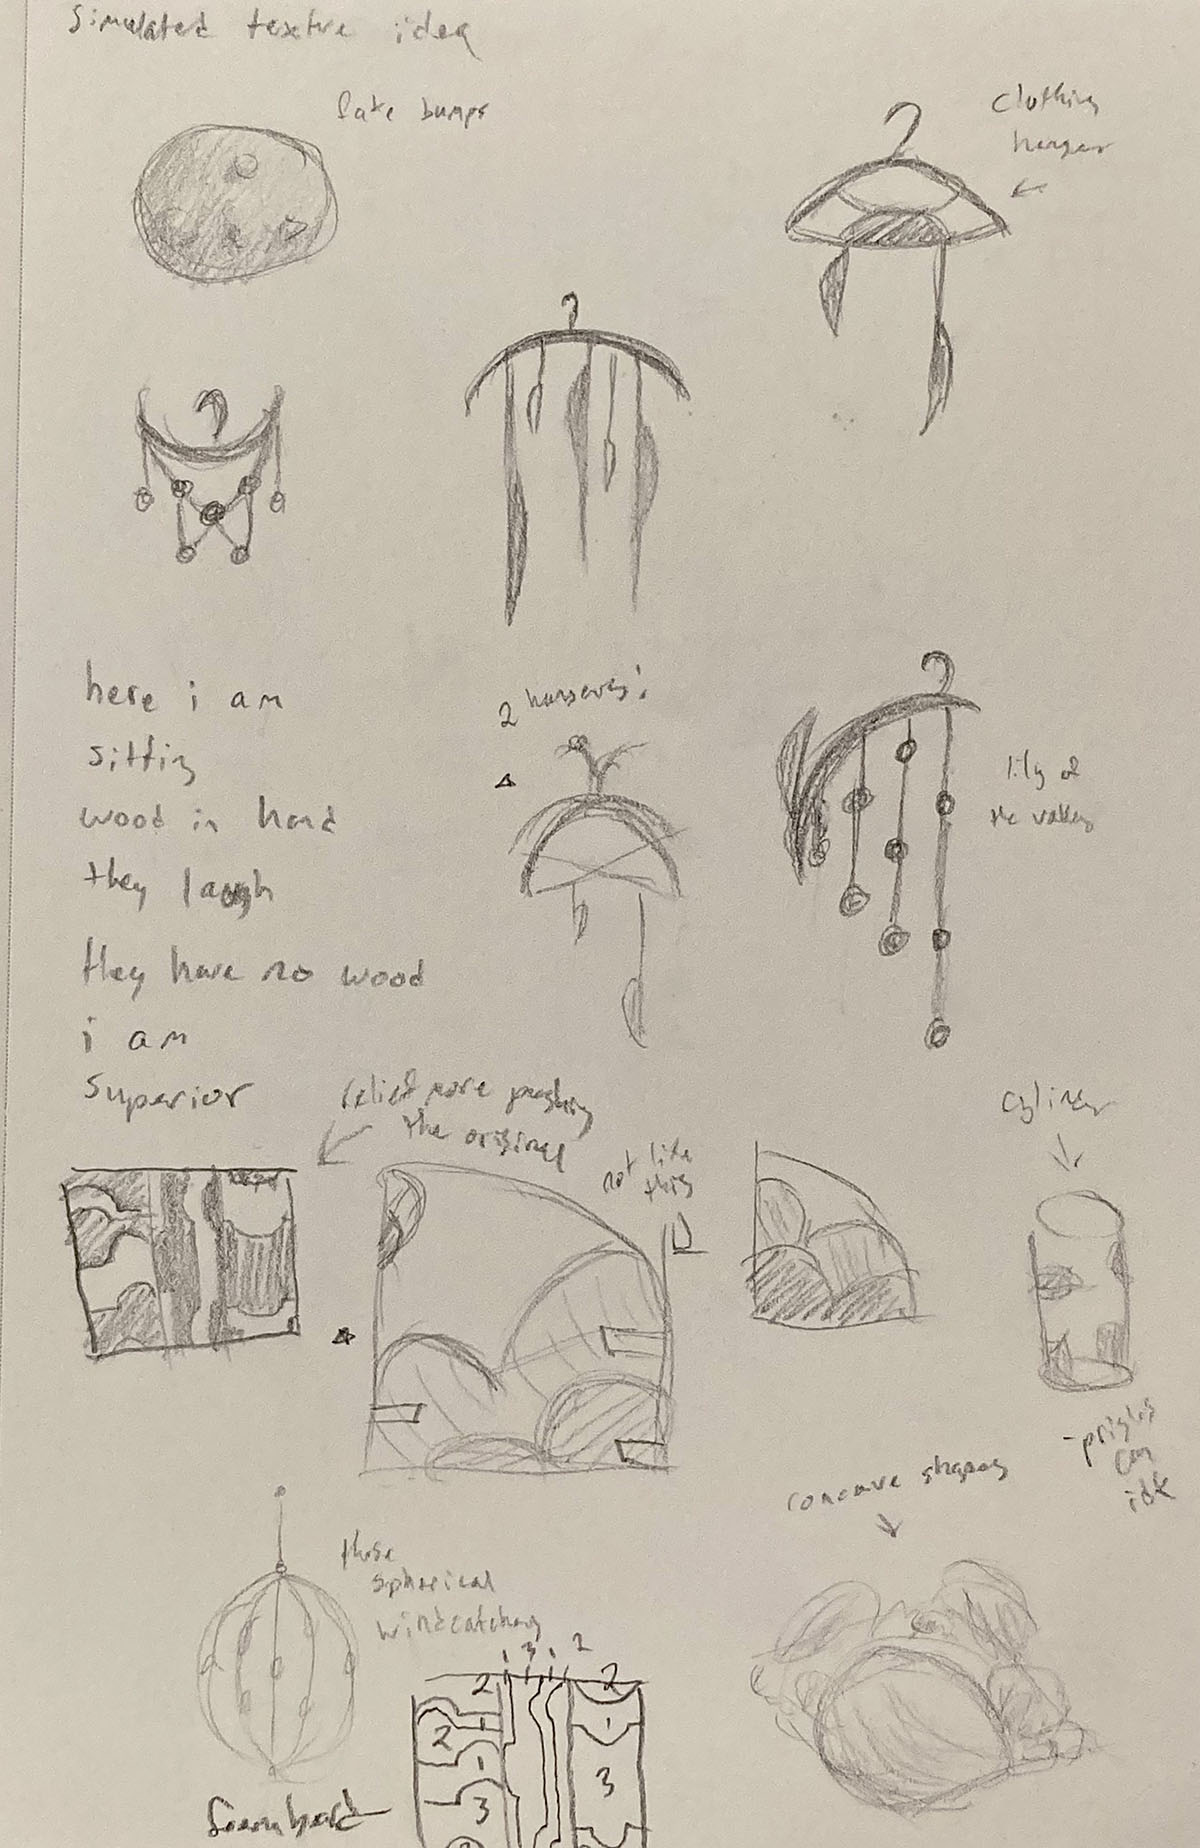 simulated texture idea
fake bumps
clothing
hanger
here i am
sitting
wood in hand
they laugh
they have no wood
i am
superior
2
lily of
the valley
relief more pushing
the original
not like
this
cylinder
-pringles
can
idk
concave shapes
those
spherical
windcatchers
1 3 1 2
2
2
1
2
1
1
3
3
foamboard